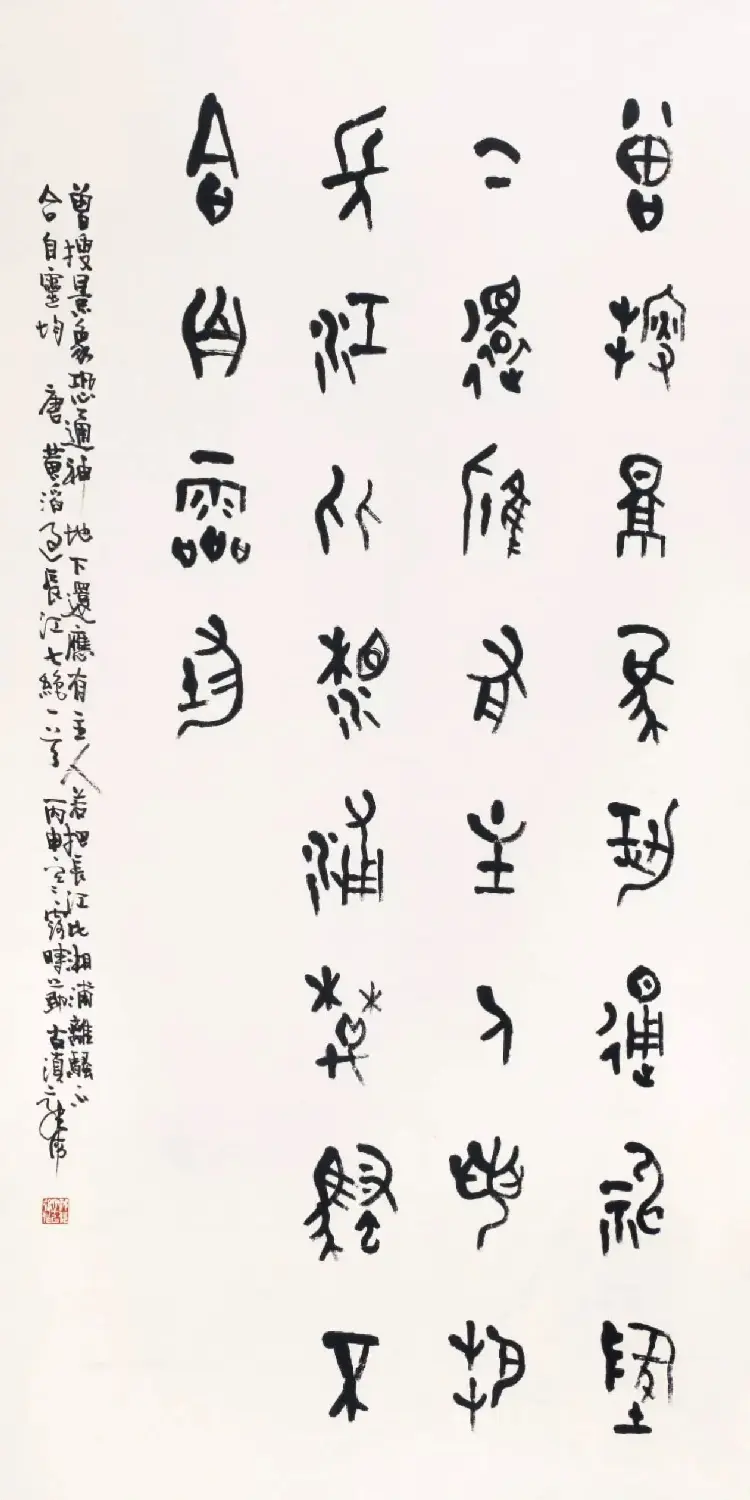 曾搜景象恐通神地
下還應有主人若把
長江比湘浦離騷不
合自靈均
曾搜景象恐通神 地下還應有主人 若把長江比湘浦離騷不
合自靈均 唐 黃滔過長江七絕一首 丙申寒露時節 古滇